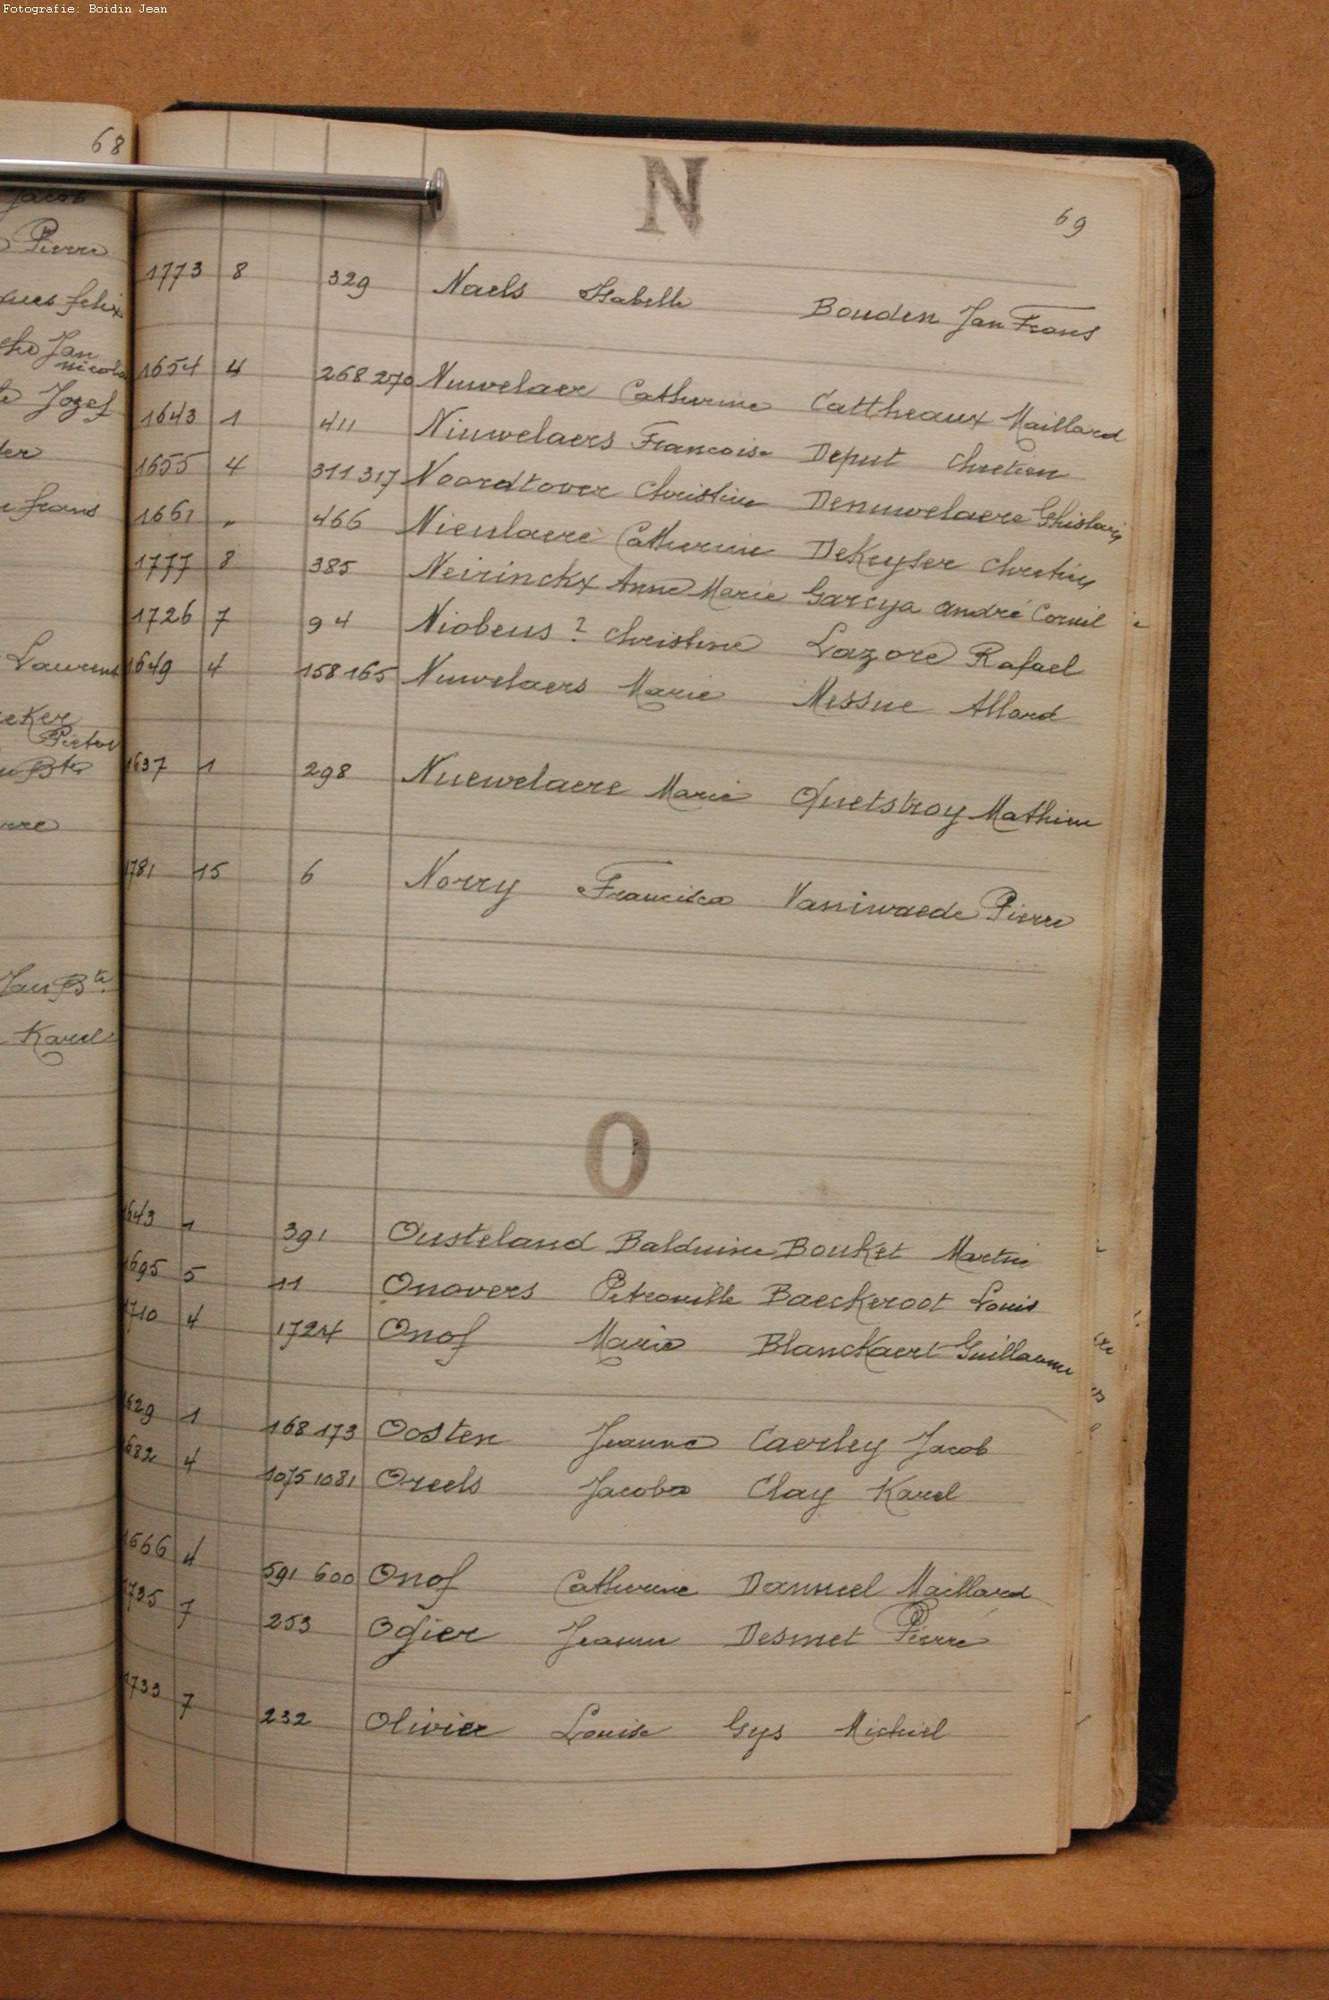 Fotografie: Boidin Jean
68
Jacob
Pierre
felix
Jan
Jozef
frans
Laurens
Pieter
Jan Bte
Karel
N
69
1773 8 329 Naels Isabelle Bouden Jan Frans
1654 4 268 270 Nuwelaer Catherine Cattheaux Maillard
1643 1 411 Niuwelaers Francoise Deput Chretien
1655 4 311 317 Noordtover Christine Denuwelaere Ghislain
1661 " 466 Nieulaere Catherine DeKeyser Chretien
1777 8 385 Neirinckx Anne Marie Garcya andré Cornil
1726 7 94 Niobeus ? Christine Lazore Rafael
1649 4 158 165 Nuwelaers Marie Messue Allard
1637 1 298 Nuewelaere Marie Quetstroy Mathieu
1781 15 6 Norry Francisca Vaniwaede Pierre
O
1643 1 391 Ousteland Balduine Bouket Martin
1695 5 11 Onovers Petronille Baeckeroot Louis
1710 4 1724 Onof Marie Blanckaert Guillaume
1629 1 168 173 Oosten Jeanne Caerley Jacob
1682 4 1075 1081 Oreels Jacoba Clay Karel
1666 4 591 600 Onof Catherine Danneel Maillard
1735 7 253 Ogier Jeanne Desmet Pierre
1733 7 232 Olivier Louise Gys Michiel